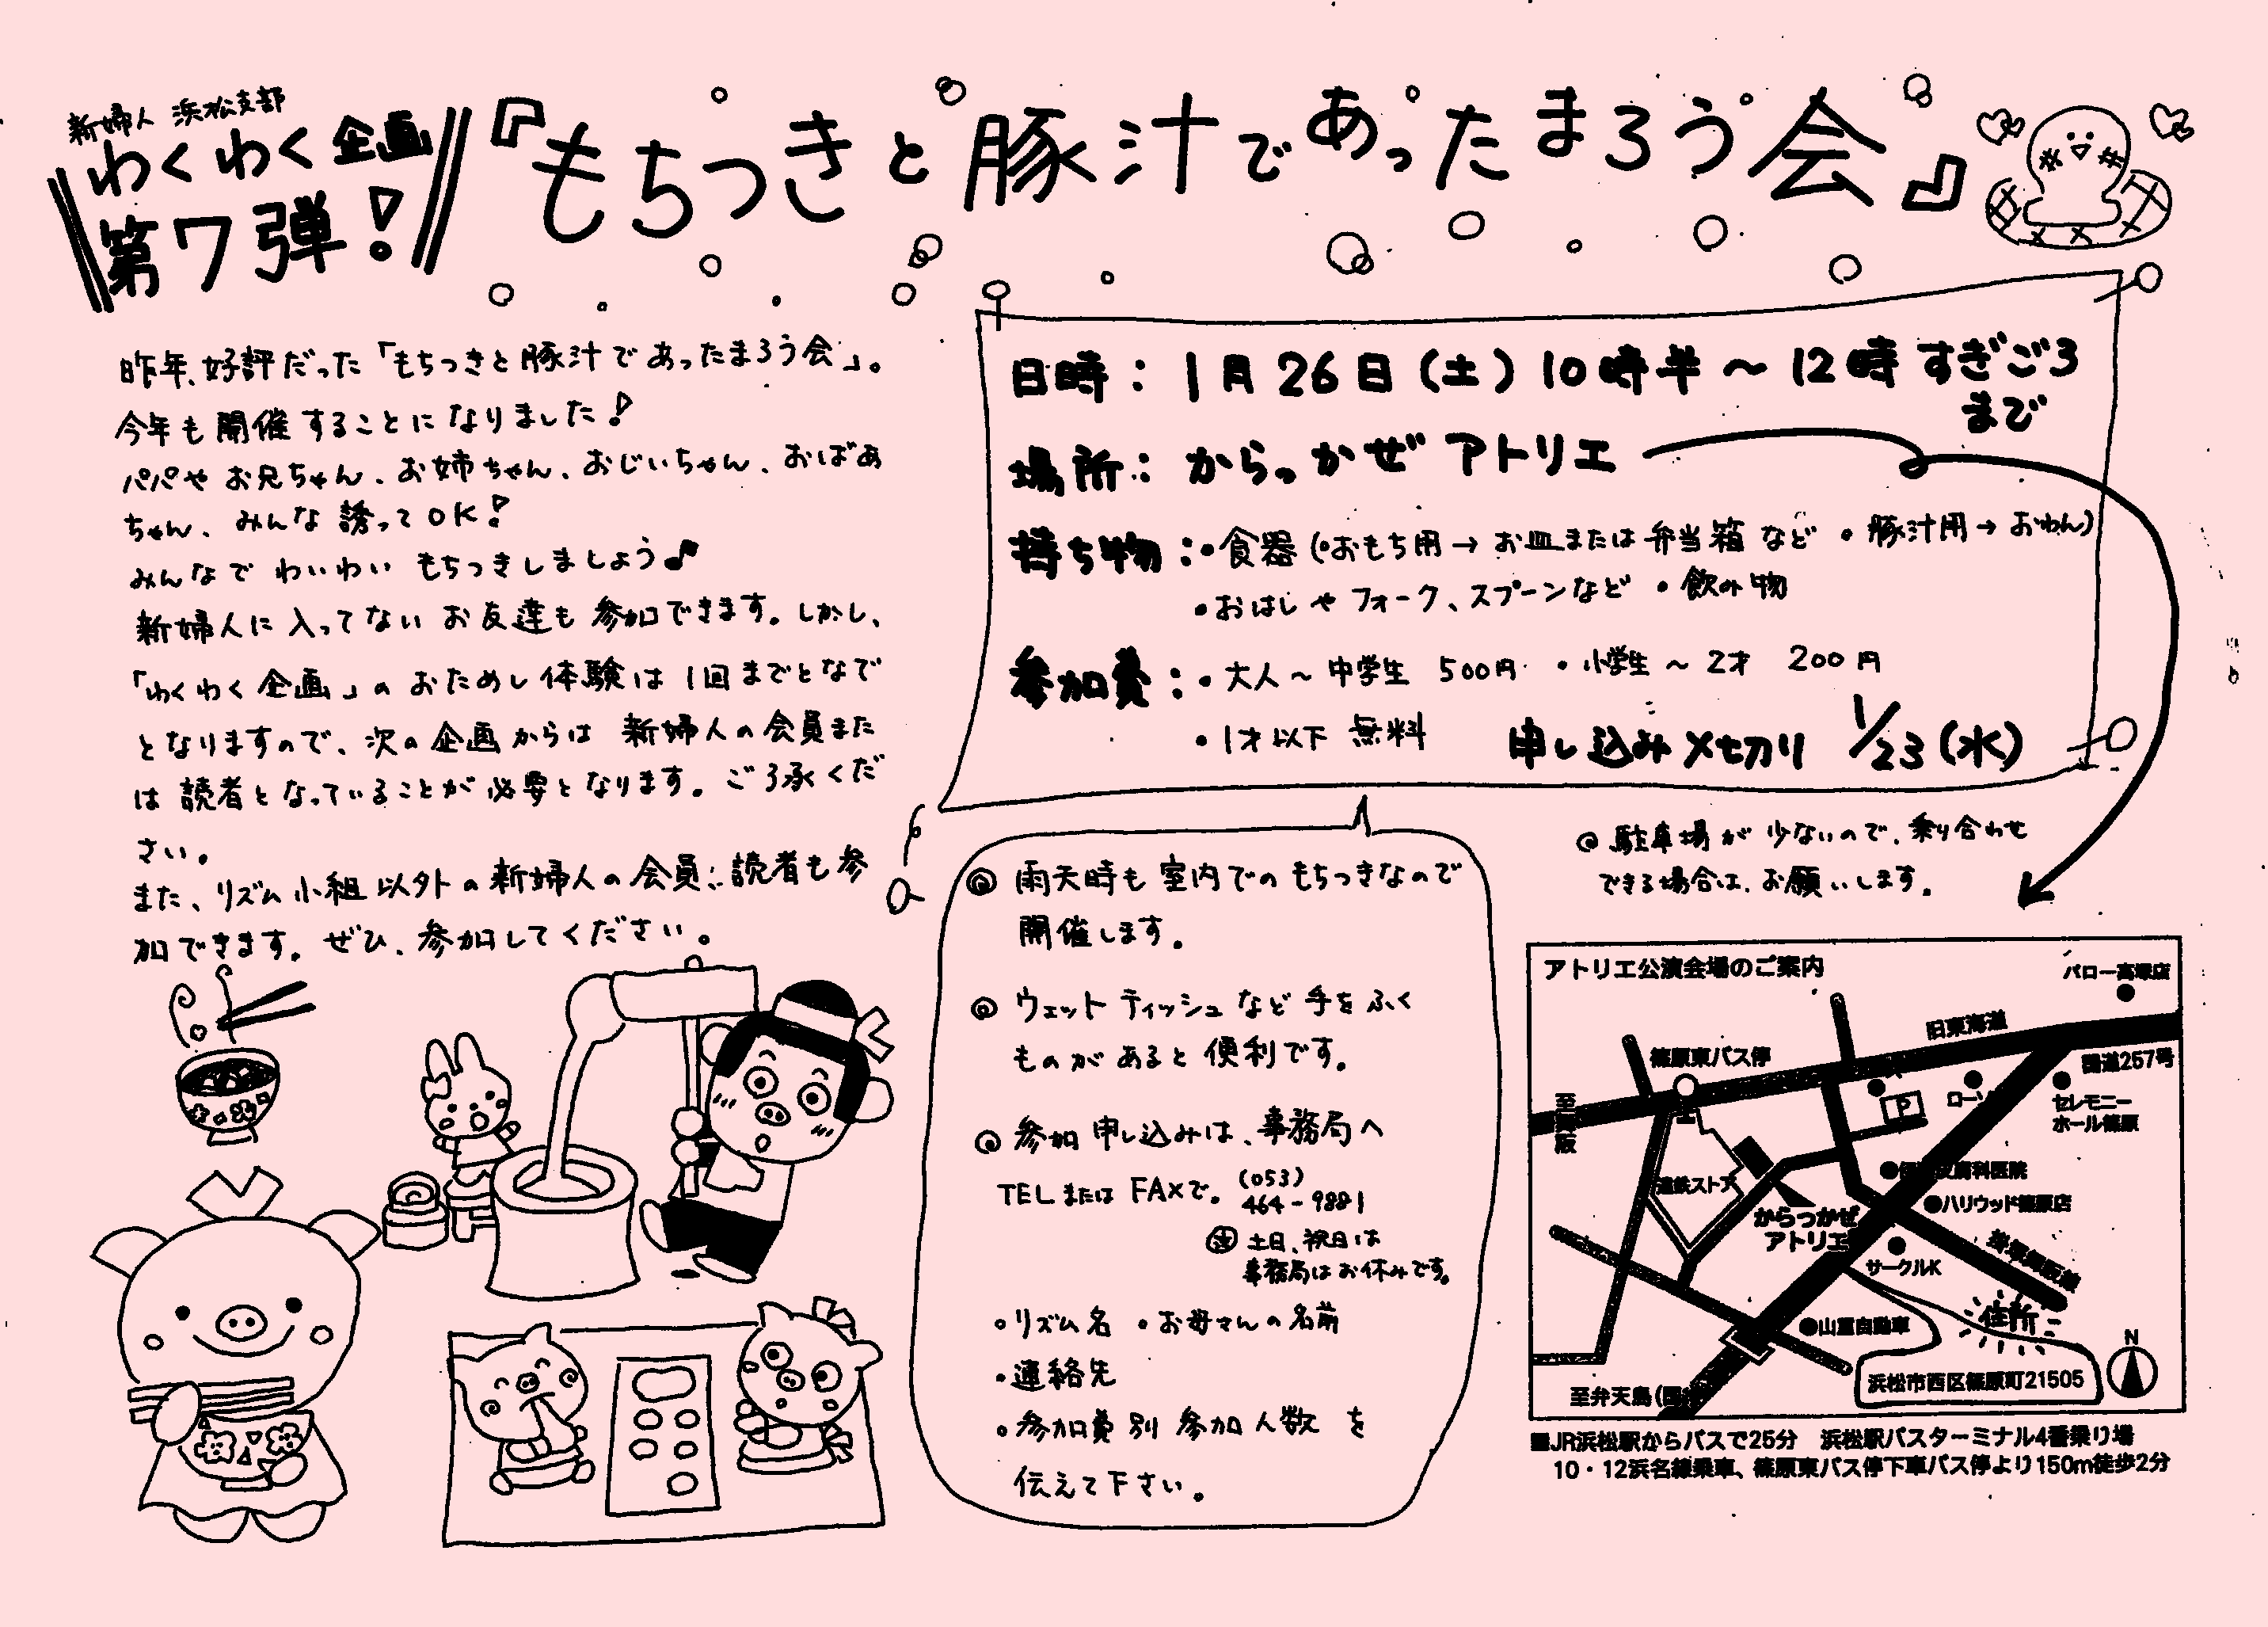 新婦人 浜松支部
わくわく企画
第7弾!
『もちつきと豚汁であったまろう会』
昨年、好評だった「もちつきと豚汁であったまろう会」。
今年も開催することになりました!
パパやお兄ちゃん、お姉ちゃん、おじいちゃん、おばあ
ちゃん、みんな誘ってOK!
みんなでわいわいもちつきしましょう♪
新婦人に入ってないお友達も参加できます。しかし、
「わくわく企画」のおためし体験は1回までとなで
となりますので、次の企画からは新婦人の会員また
は読者となっていることが必要となります。ご了承くだ
さい。
また、リズム小組以外の新婦人の会員、読者も参
加できます。ぜひ、参加してください。
日時:1月26日(土)10時半〜12時すぎごろ
まで
場所:からっかぜアトリエ
持ち物:・食器(・おもち用→お皿または弁当箱など ・豚汁用→おわん)
・おはしやフォーク、スプーンなど ・飲み物
参加費:・大人〜中学生 500円 ・小学生〜2才 200円
・1才以下 無料 申し込み〆切り 1/23(水)
◎駐車場が少ないので、乗り合わせ
できる場合は、お願いします。
◎雨天時も室内でのもちつきなので
開催します。
◎ウェットティッシュなど手をふく
ものがあると便利です。
◎参加申し込みは、事務局へ
TELまたはFAXで。(053)
464-9881
注 土日、祝日は
事務局はお休みです。
・リズム名 ・お母さんの名前
・連絡先
・参加費別参加人数を
伝えて下さい。
アトリエ公演会場のご案内
バロー高塚店
旧東海道
篠原東バス停
国道257号
至舞阪
P
セレモニー
ホール篠原
遠鉄ストア
皮膚科医院
ハリウッド篠原店
からっかぜ
アトリエ
サークルK
山重自動車
住所
N
浜松市西区篠原町21505
至弁天島
■JR浜松駅からバスで25分 浜松駅バスターミナル4番乗り場
10・12浜名線乗車、篠原東バス停下車バス停より150m徒歩2分